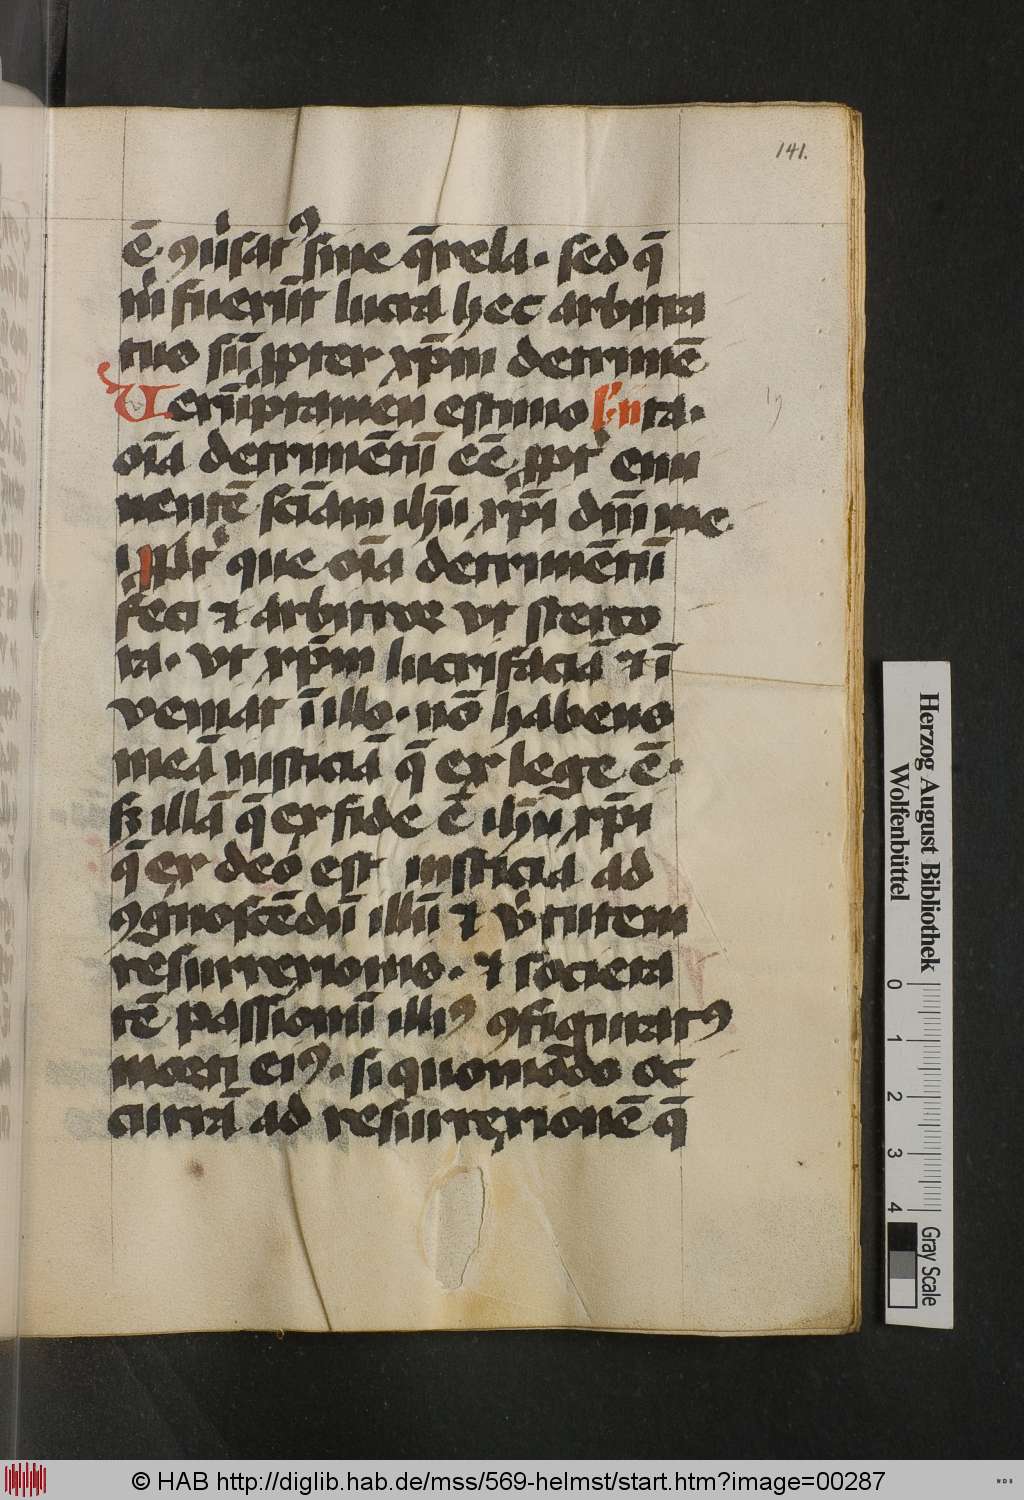 141.
ē · ꝯuͥsatꝰ sine q̄rela · sed q̄
mͥ fuerūt lucra hec arbitra
tus sū ꝓpter xp̄m detrimē
Uerūptamen estimo lͦ ii ta ·
oīa detrimētū eē ꝓptͥ emi
nentē sciām ihū xp̄i dn̄i me
i ꝓptͥ que oīa detrimētū
feci ⁊ arbitror vt sterco
ra · vt xp̄m lucrifaciā ⁊ ī
veniar ī illo · nō habens
meā iusticiā q̄ ex lege ē ·
sꝫ illā q̄ ex fide ē ihū xp̄i
q̄ ex deo est iusticia ad
ꝯgnoscēdū illū ⁊ vͥtutem
resurrexionis · ⁊ societa
tē passionū illiꝰ ꝯfiguratꝰ
morti eiꝰ · si quomōdo oc
currā ad resurrexionē q̄
Herzog August Bibliothek
Wolfenbüttel
0 1 2 3 4
Gray Scale
© HAB http://diglib.hab.de/mss/569-helmst/start.htm?image=00287